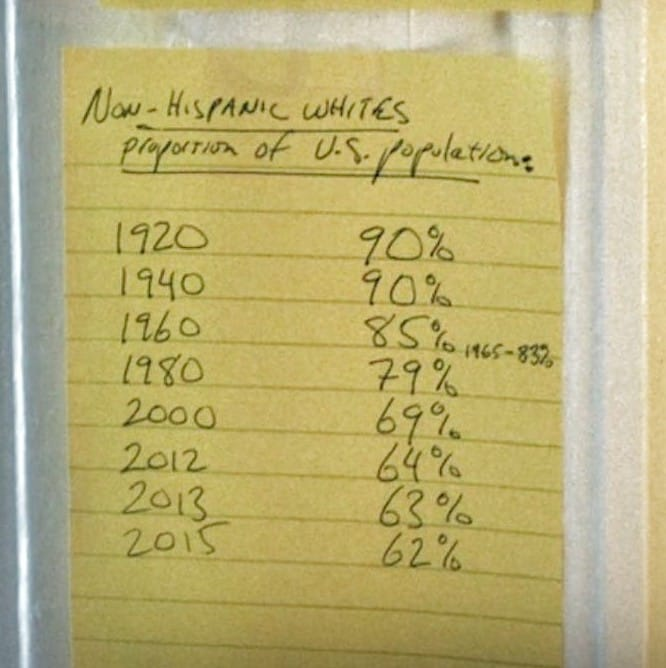 Non-Hispanic whites
proportion of U.S. population:
1920 90%
1940 90%
1960 85% 1965-83%
1980 79%
2000 69%
2012 64%
2013 63%
2015 62%